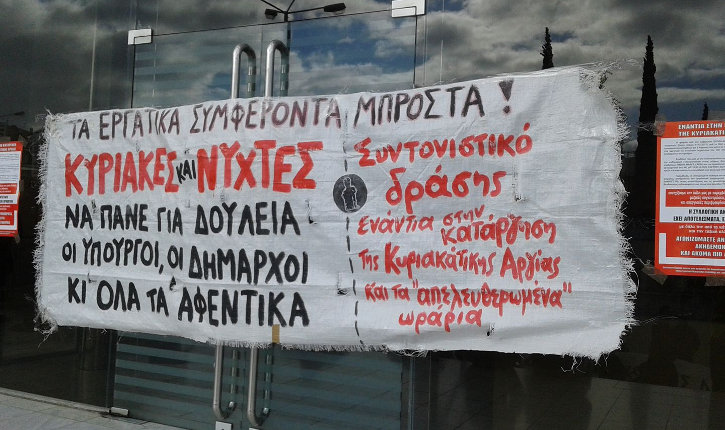 ΤΑ ΕΡΓΑΤΙΚΑ ΣΥΜΦΕΡΟΝΤΑ ΜΠΡΟΣΤΑ!
ΚΥΡΙΑΚΕΣ ΚΑΙ ΝΥΧΤΕΣ
ΝΑ ΠΑΝΕ ΓΙΑ ΔΟΥΛΕΙΑ
ΟΙ ΥΠΟΥΡΓΟΙ, ΟΙ ΔΗΜΑΡΧΟΙ
ΚΙ ΟΛΑ ΤΑ ΑΦΕΝΤΙΚΑ
Συντονιστικό
δράσης
ενάντια στην
κατάργηση
της Κυριακάτικης Αργίας
και τα "απελευθερωμένα"
ωράρια
ΕΝΑΝΤΙΑ ΣΤΗΝ
ΤΗΣ ΚΥΡΙΑΚΑΤ
Η ΣΥΛΛΟΓΙΚΗ ΑΝ
ΕΧΕΙ ΑΠΟΤΕΛΕΣΜΑΤΑ
ΑΓΩΝΙΖΟΜΑΣΤΕ ΑΝ
ΚΑΙ ΑΚΟΜΑ ΠΙΟ